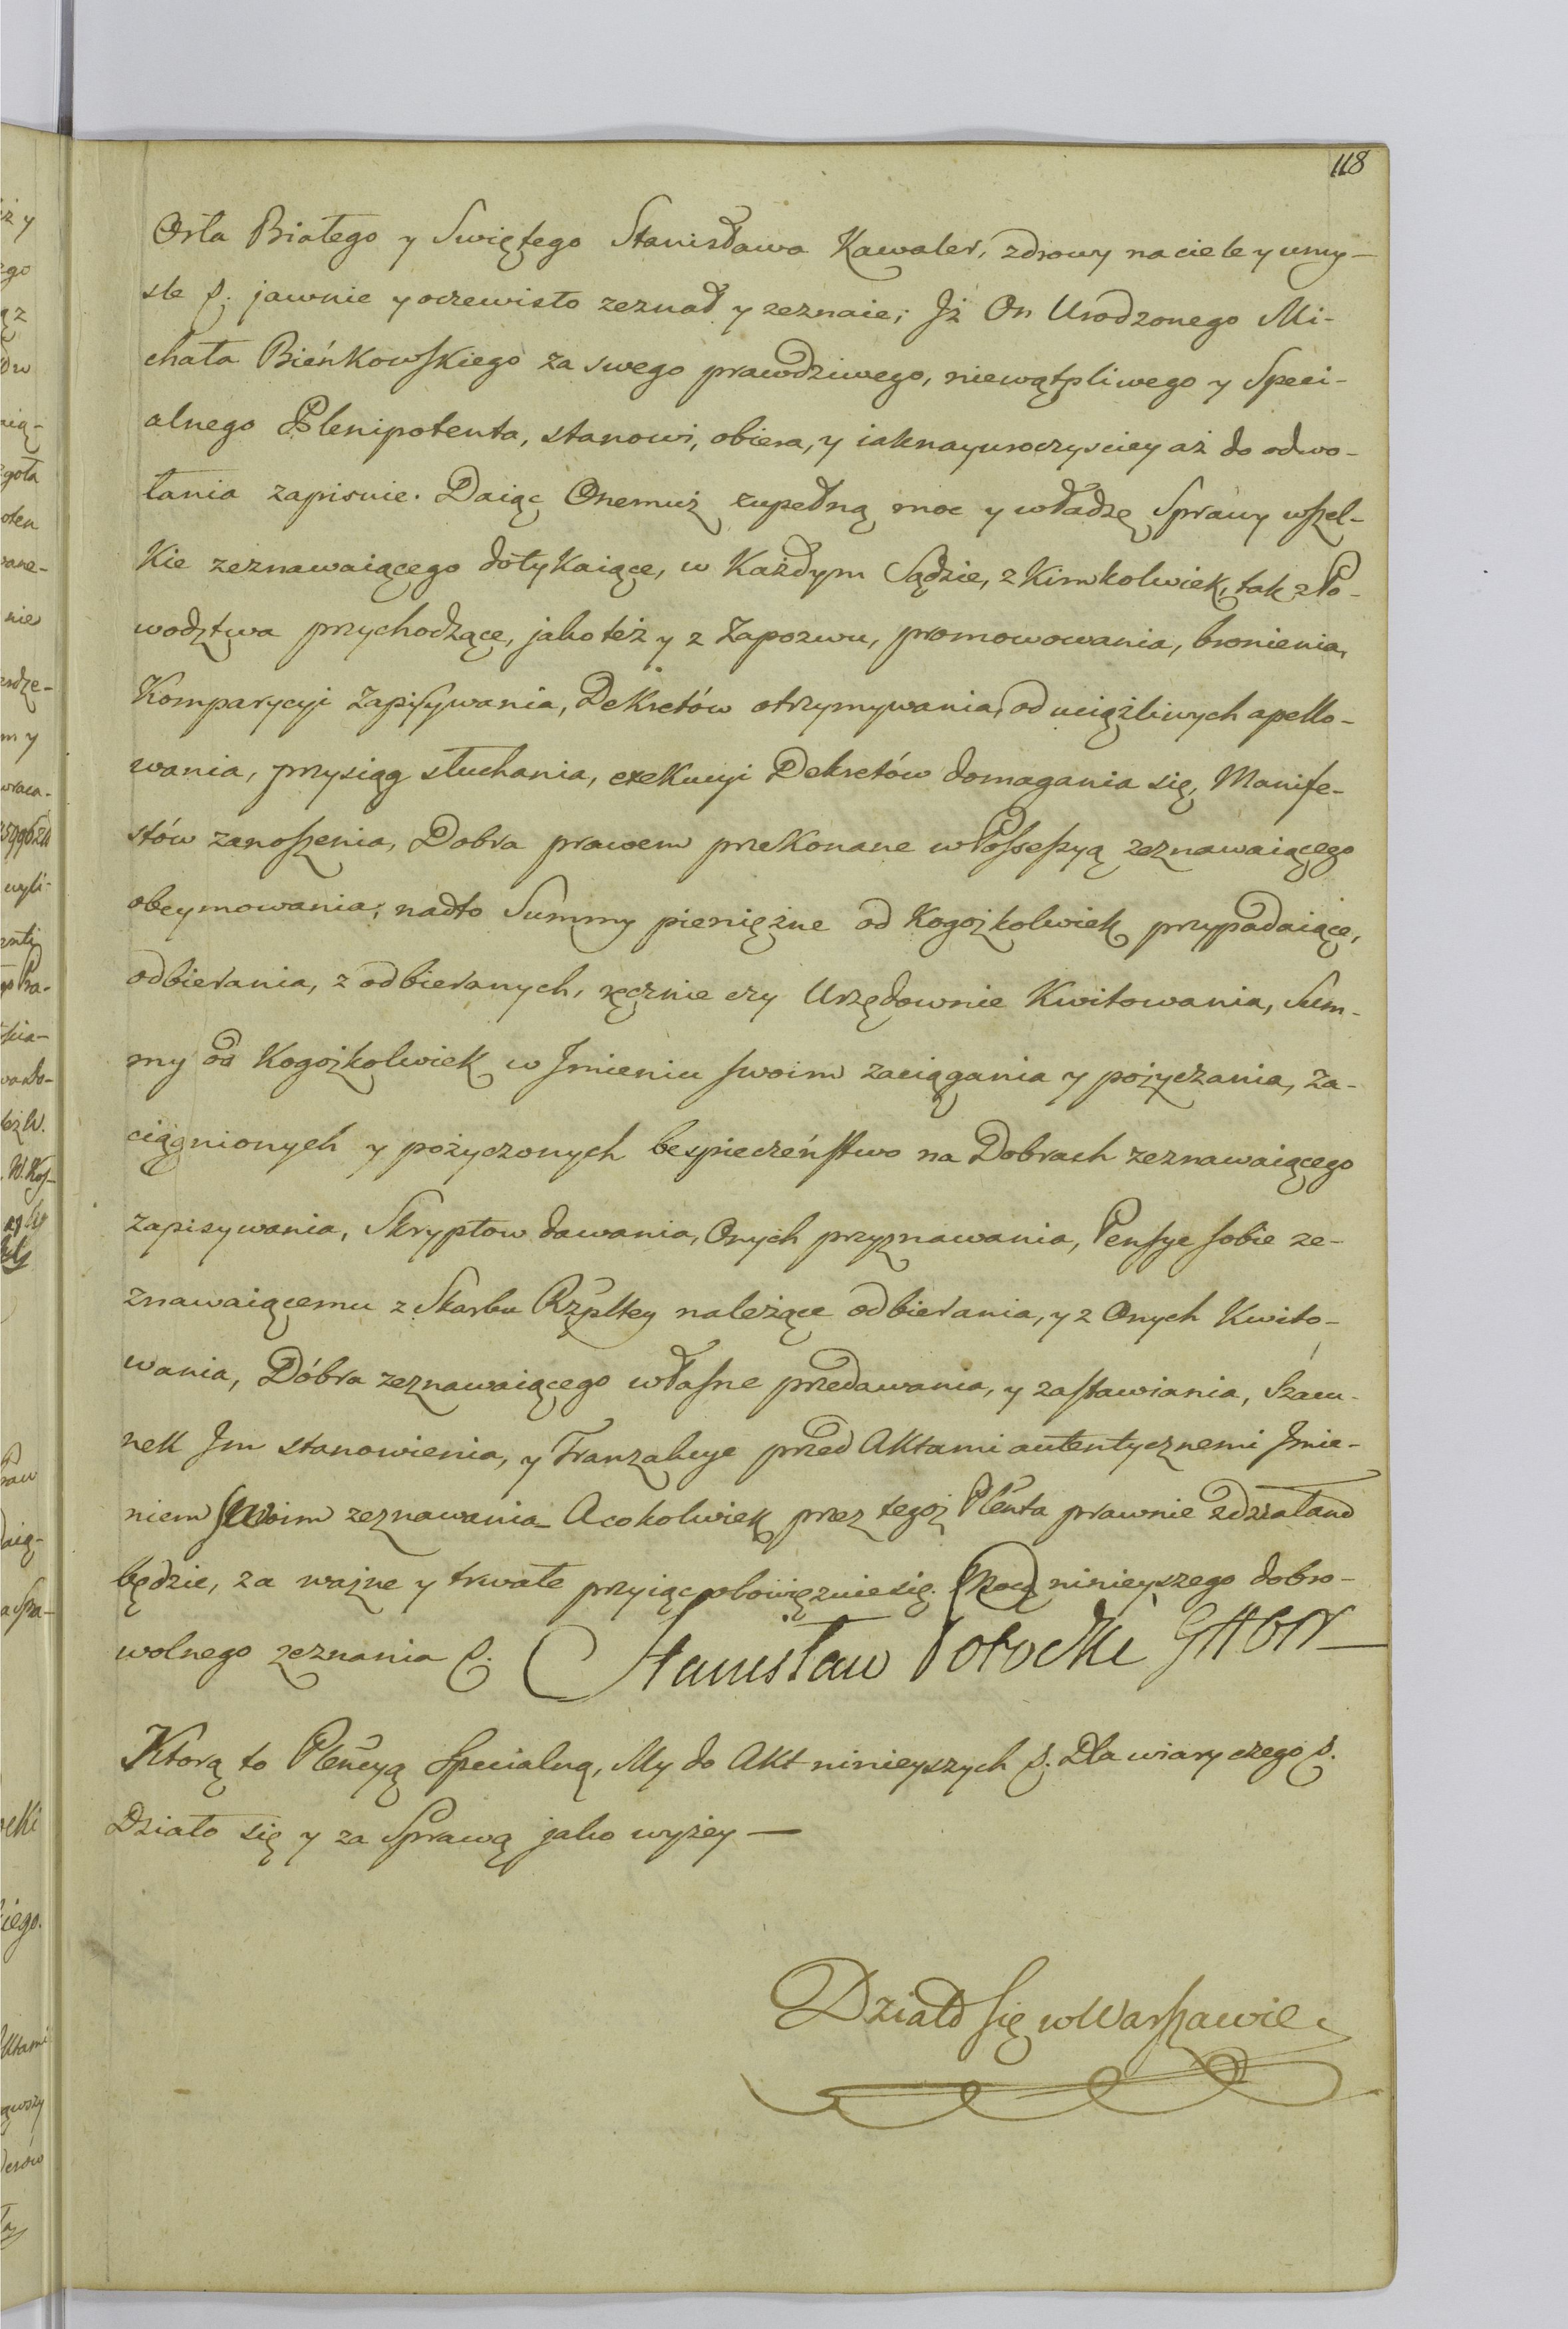 118
Orła Białego y Swiętego Stanisława Kawaler, zdrowy na ciele y umy-
sle p. jawnie y oczewisto zeznał y zeznaie; Jż On Urodzonego Mi-
chała Bieńkowskiego za swego prawdziwego, niewątpliwego y Speci-
alnego Plenipotenta, stanowi, obiera, y iaknayuroczysciey aż do odwo-
łania zapisuie. Daiąc Onemuż zupełną moc y władzę Sprawy wszel-
kie zeznawaiącego dotykaiące, w Każdym Sądzie, z Kimkolwiek, tak z Po-
wodztwa przychodzące, jako też y z Zapozwu, promowowania, bronienia,
Komparycyi zapisywania, Dekretów otrzymywania, od uciążliwych apello-
wania, przysiąg słuchania, exekucyi Dekretów domagania się, Manife-
stów zanoszenia, Dobra prawem przekonane w Possessyą zeznawaiącego
obeymowania; nadto Summy pieniężne od Kogożkolwiek przypadaiące,
odbierania, z odbieranych, ręcznie czy Urzędownie Kwitowania, Sum-
my od Kogożkolwiek w Jmieniu swoim zaciągania y pożyczania, za-
ciągnionych y pożyczonych bespieczeństwo na Dobrach zeznawaiącego
zapisywania, Skryptow dawania, Onych przyznawania, Pensye sobie ze-
znawaiącemu z Skarbu Rzpltey należące odbierania, y z Onych Kwito-
wania, Dóbra zeznawaiącego własne przedawania, y zastawiania, Szacu-
nek Jm stanowienia, y Tranzakcye przed Aktami autentycznemi Jmie-
niem swoim zeznawania A cokolwiek przez tegoż Plenta prawnie zdziałano
będzie, za ważne y trwałe przyiąc obowięzuie się. Mocą ninieyszego dobro-
wolnego zeznania p. Stanisław Potocki
Ktorą to Plencyą Specialną, My do Akt ninieyszych p. Dla wiary czego p.
Działo się y za Sprawą jako wyżey —
Działo się w Warszawie